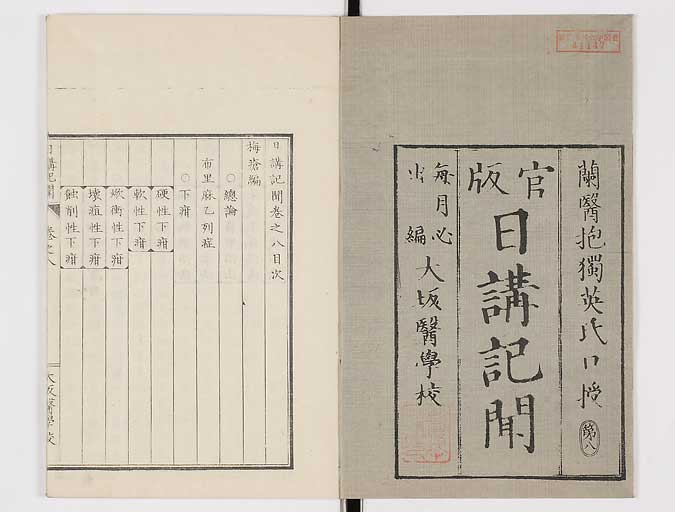 蘭醫抱獨英氏口授
第八
官版
日講記聞
每月必出編
大坂醫學校
41147
日講記聞卷之八目次
梅瘡編
○總論
布里麻乙列症
○下疳
硬性下疳
軟性下疳
焮衝性下疳
壞疽性下疳
蝕削性下疳
日講記聞
卷之八
大坂醫學校